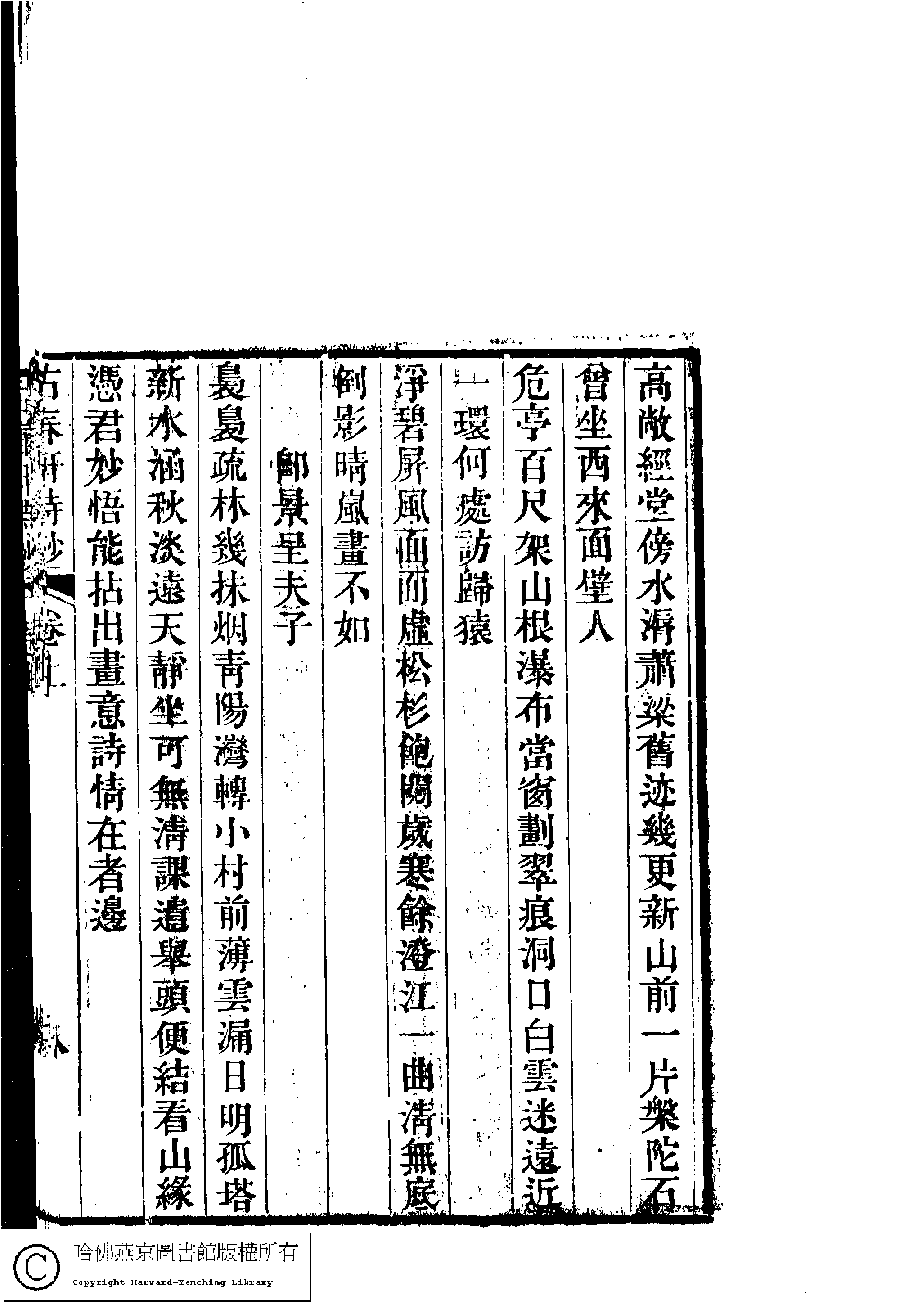 高敞經堂傍水漘蕭梁舊迹幾更新山前一片槃陀石
曾坐西來面壁人
危亭百尺架山根瀑布當窗劃翠痕洞口白雲迷遠近
一環何處訪歸猿
淨碧屏風面面虛松杉飽閱歲寒餘澄江一曲清無底
倒影晴嵐畫不如
卽景呈夫子
裊裊疏林幾抹烟靑陽灣轉小村前薄雲漏日明孤塔
新水涵秋淡遠天靜坐可無淸課遣舉頭便結看山緣
憑君妙悟能拈出畫意詩情在者邊
軒詩鈔 卷上
哈佛燕京圖書館版權所有
Copyright Harvard-Yenching Library